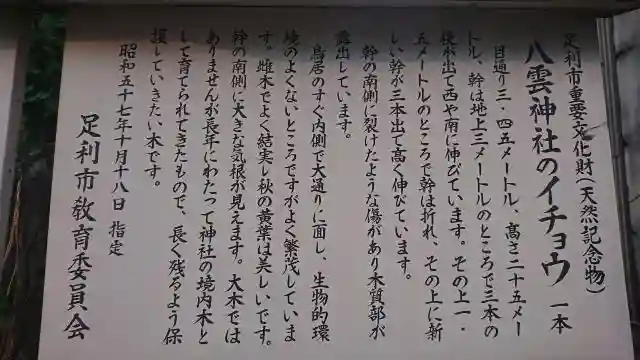 足利市重要文化財(天然記念物)
八雲神社のイチョウ 一本
目通り三・四五メートル、高さ二十五メー
トル、幹は地上三メートルのところで三本の
枝が出て西や南に伸びています。その上一・
五メートルのところで幹は折れ、その上に新
しい幹が三本出て高く伸びています。
幹の南側に裂けたような傷があり木質部が
露出しています。
鳥居のすぐ内側で大通りに面し、生物的環
境のよくないところですがよく繁茂していま
す。雌木でよく結実し秋の黄葉は美しいです。
幹の南側に大きな気根が見えます。大木では
ありませんが長年にわたって神社の境内木と
して育てられてきたもので、長く残るよう保
護していきたい木です。
昭和五十七年十月十八日 指定
足利市教育委員会